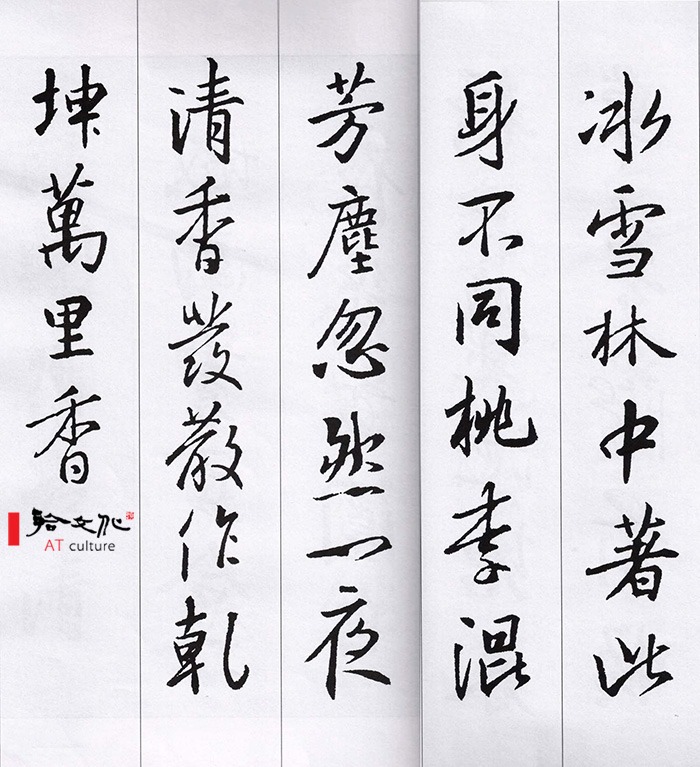 冰雪林中著此
身不同桃李混
芳塵忽然一夜
清香發散作乾
坤萬里香
文化
AT culture